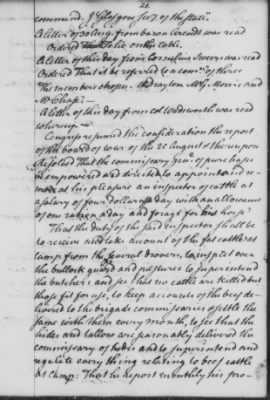 21
command. J Glasgow Secy of the state"
A letter of 30 Aug. from baron Arendt was read
Ordered that to lie on the table.
A letter of this day from Cornelius Sweers was read
Ordered That it be referred to a comee of three
The members chosen Mr Drayton Mr G Morris and
Mr Chase:-
A letter of this day from col Wadsworth was read
whereup-
Congress resumed the consideration the report
of the board of war of the 20 August & thereupon
Resolved That the commissary genl. of purchases
be empowered and directed to appoint and re-
move at his pleasure an inspector of cattle at
a salary of four dollars a day with an allowance
of one ration a day and forage for his horse
That the duty of the said Inspector shall be
to receive and take account of the fat cattle at
camp from the several drovers, to inspect over
the bullock guard and pastures to superintend
the butchers and see that no cattle are killed but
those fit for use, to keep accounts of the beef de-
livered to the brigade commissaries & settle the
same with them every month, to see that the
hides and tallow are seasonably delivered the
commissary of hides and to superintend and
regulate every thing relating to beef cattle
at camp: That he report monthly his pro-